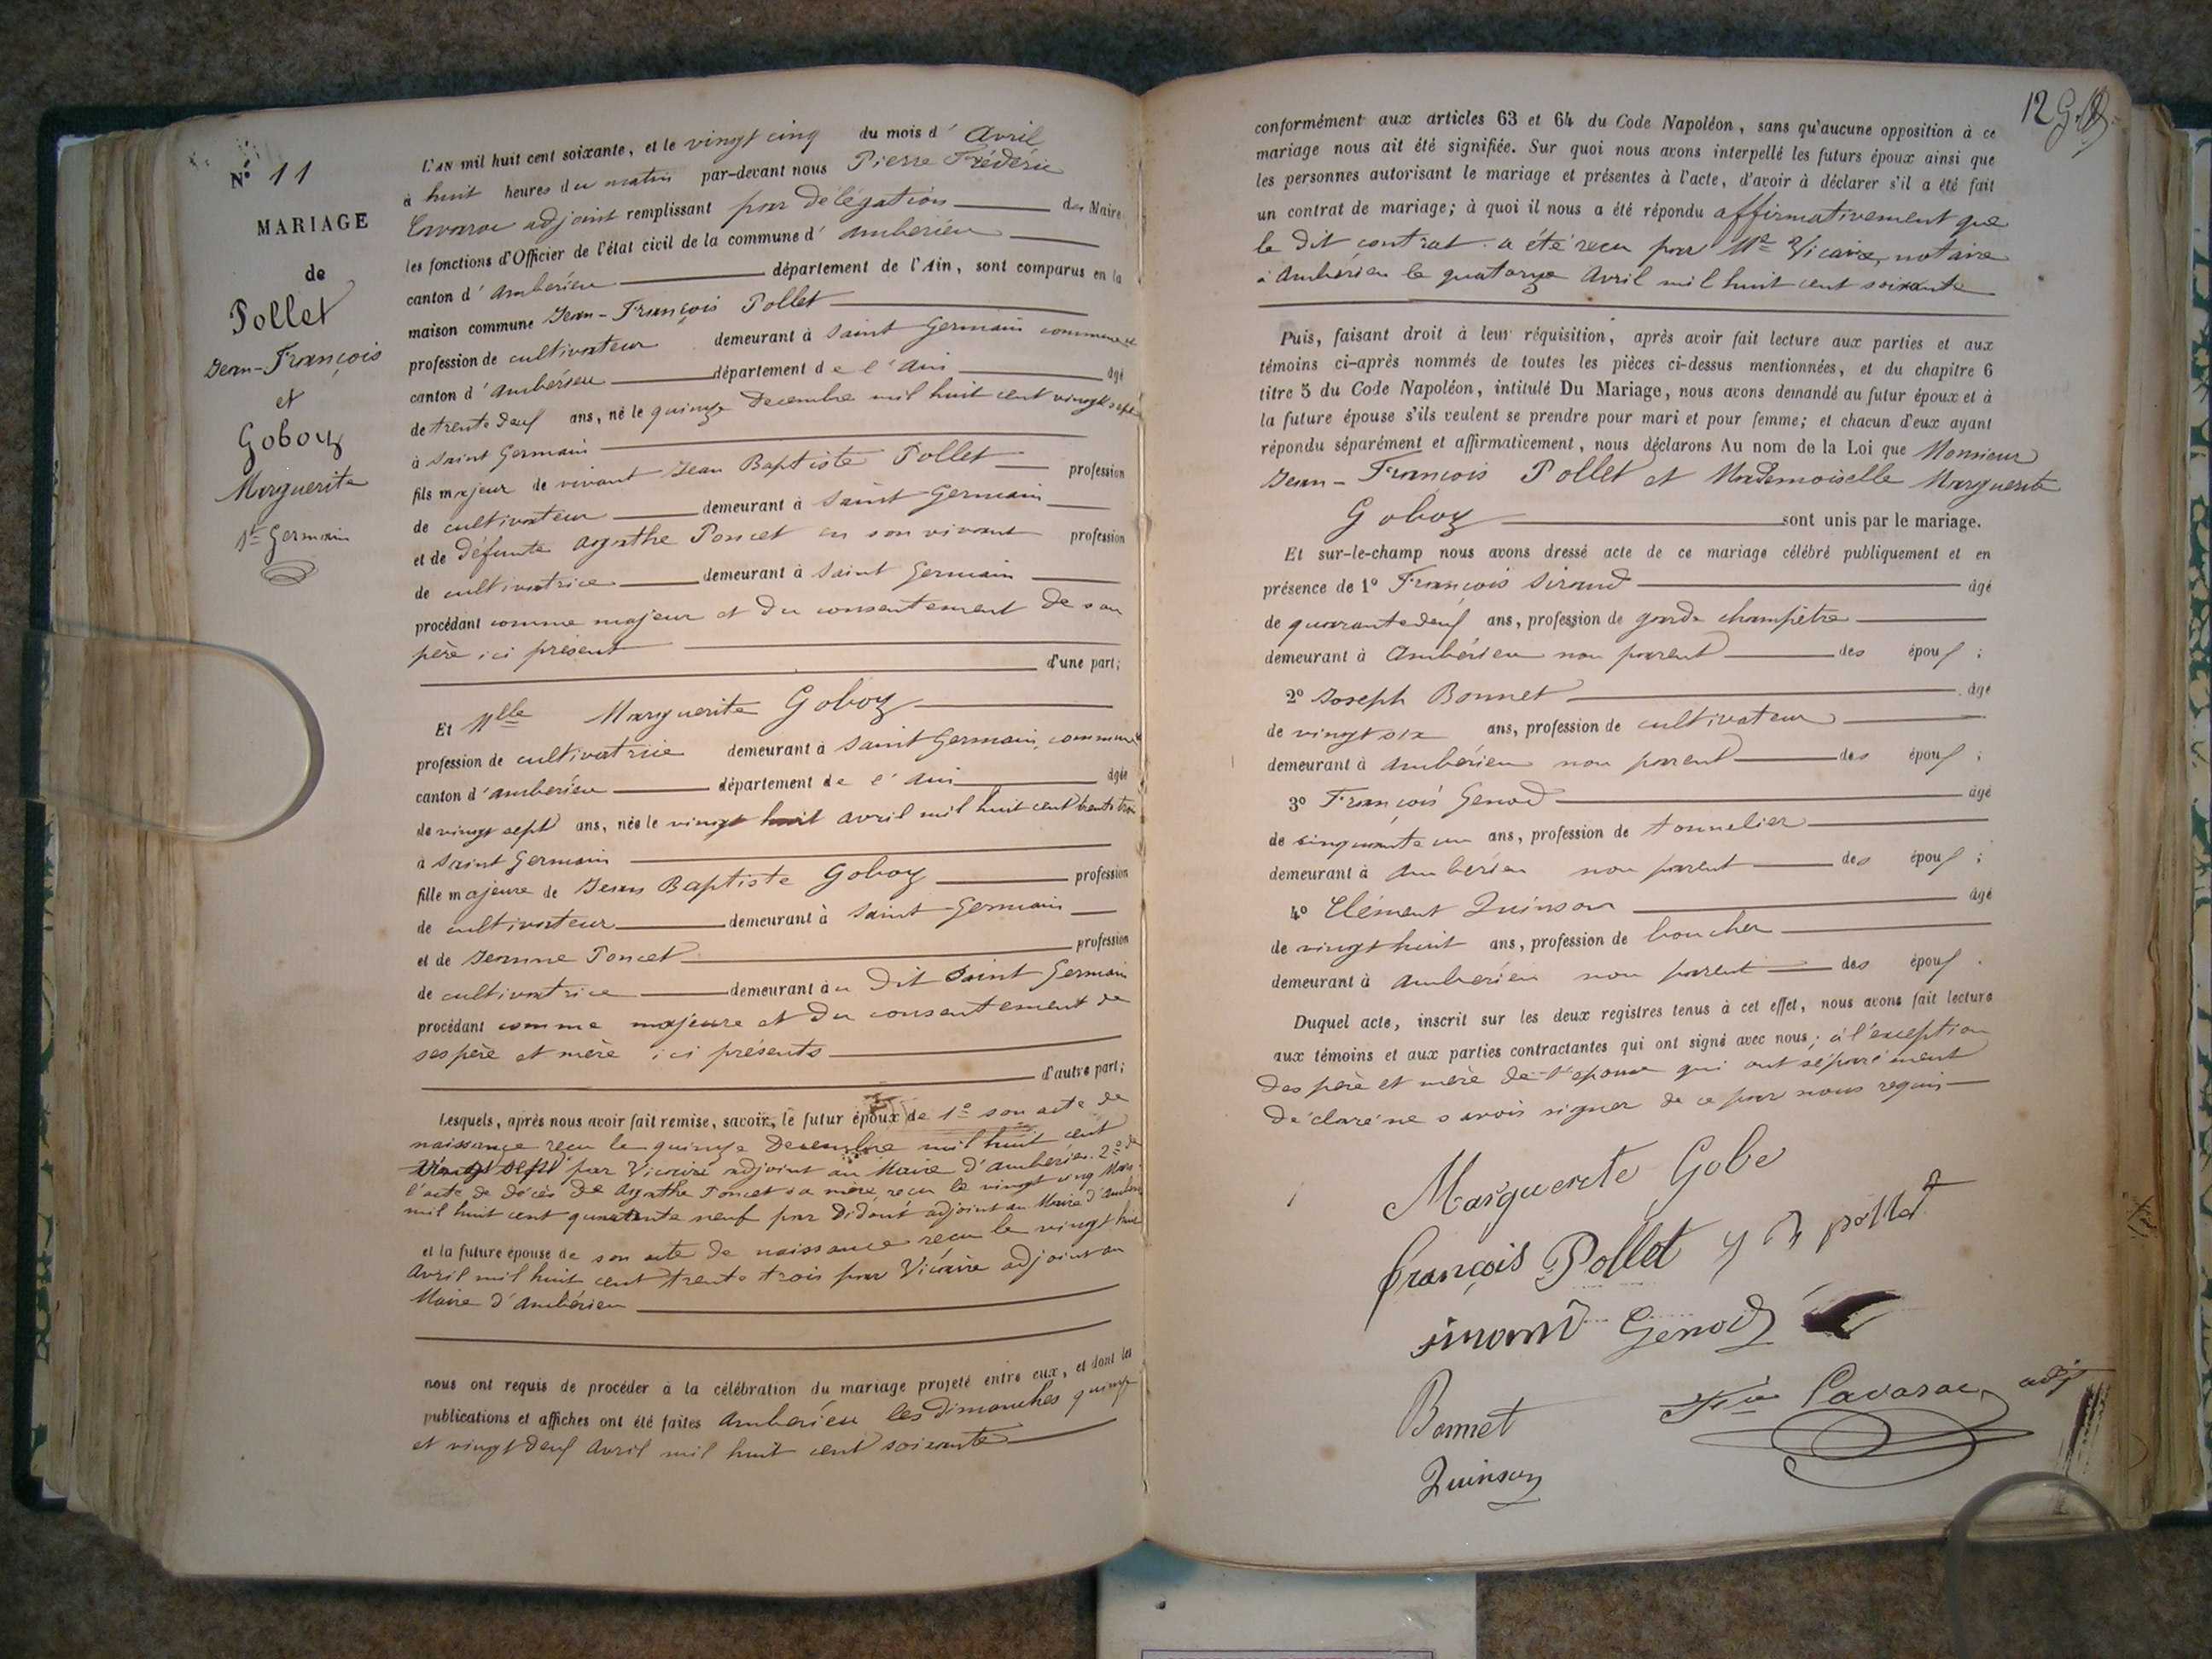 N° 11
MARIAGE
de
Pollet
Jean-François
et
Goboz
Marguerite
St Germain
L'AN mil huit cent soixante, et le vingt cinq du mois d' Avril
à huit heures du matin par-devant nous Pierre Frédéric
Cavarac adjoint remplissant par délégation des Maire
les fonctions d'Officier de l'état civil de la commune d' ambérieu
canton d' ambérieu département de l'Ain, sont comparus en la
maison commune Jean-François Pollet
profession de cultivateur demeurant à Saint Germain commune et
canton d' ambérieu département de l'ain âgé
de trente deux ans, né le quinze Decembre mil huit cent vingt sept
à Saint Germain
fils majeur de vivant Jean Baptiste Pollet profession
de cultivateur demeurant à Saint Germain
et de défunte agathe Poncet en son vivant profession
de cultivatrice demeurant à Saint Germain
procédant comme majeur et du consentement de son
père ici présent
d'une part;
Et Mlle Marguerite Goboz
profession de cultivatrice demeurant à Saint Germain, commune et
canton d' ambérieu département de l'ain âgée
de vingt sept ans, née le vingt huit avril mil huit cent trente trois
à Saint Germain
fille majeure de Jean Baptiste Goboz profession
de cultivateur demeurant à Saint-Germain
et de Jeanne Poncet profession
de cultivatrice demeurant au dit Saint Germain
procédant comme majeure et du consentement de
ses père et mère ici présents
d'autre part;
Lesquels, après nous avoir fait remise, savoir, le futur époux de 1° son acte de
naissance reçu le quinze Decembre mil huit cent
vingt sept par Vicaire adjoint au Maire d'ambérieu. 2° de
l'acte de décès de Agathe Poncet sa mère, reçu le vingt cinq Mars
mil huit cent quarante neuf par Didout adjoint au Maire d'ambérieu
et la future épouse de son acte de naissance reçu le vingt huit
Avril mil huit cent trente trois par Vicaire adjoint au
Maire d'ambérieu
nous ont requis de procéder à la célébration du mariage projeté entre eux, et dont les
publications et affiches ont été faites ambérieu les dimanches quinze
et vingt deux Avril mil huit cent soixante
12
conformément aux articles 63 et 64 du Code Napoléon, sans qu'aucune opposition à ce
mariage nous ait été signifiée. Sur quoi nous avons interpellé les futurs époux ainsi que
les personnes autorisant le mariage et présentes à l'acte, d'avoir à déclarer s'il a été fait
un contrat de mariage; à quoi il nous a été répondu affirmativement que
le dit contrat a été reçu par Me Vicaire, notaire
à Ambérieu le quatorze Avril mil huit cent soixante
Puis, faisant droit à leur réquisition, après avoir fait lecture aux parties et aux
témoins ci-après nommés de toutes les pièces ci-dessus mentionnées, et du chapitre 6
titre 5 du Code Napoléon, intitulé Du Mariage, nous avons demandé au futur époux et à
la future épouse s'ils veulent se prendre pour mari et pour femme; et chacun d'eux ayant
répondu séparément et affirmativement, nous déclarons Au nom de la Loi que Monsieur
Jean-François Pollet et Mademoiselle Marguerite
Goboz sont unis par le mariage.
Et sur-le-champ nous avons dressé acte de ce mariage célébré publiquement et en
présence de 1° François Siraud âgé
de quarante deux ans, profession de garde champêtre
demeurant à Ambérieu non parent des époux;
2° Joseph Bonnet âgé
de vingt six ans, profession de cultivateur
demeurant à ambérieu non parent des époux;
3° François Genod âgé
de cinquante un ans, profession de tonnelier
demeurant à ambérieu non parent des époux;
4° Clément Quinson âgé
de vingt huit ans, profession de boucher
demeurant à ambérieu non parent des époux.
Duquel acte, inscrit sur les deux registres tenus à cet effet, nous avons fait lecture
aux témoins et aux parties contractantes qui ont signé avec nous; à l'exception
des père et mère de l'épouse qui ont séparément
déclaré ne savoir signer de ce par nous requis
Marguerite Gobe
françois Pollet J B pollet
siraud Genod
Bonnet Fic Cavarac adj
Quinson